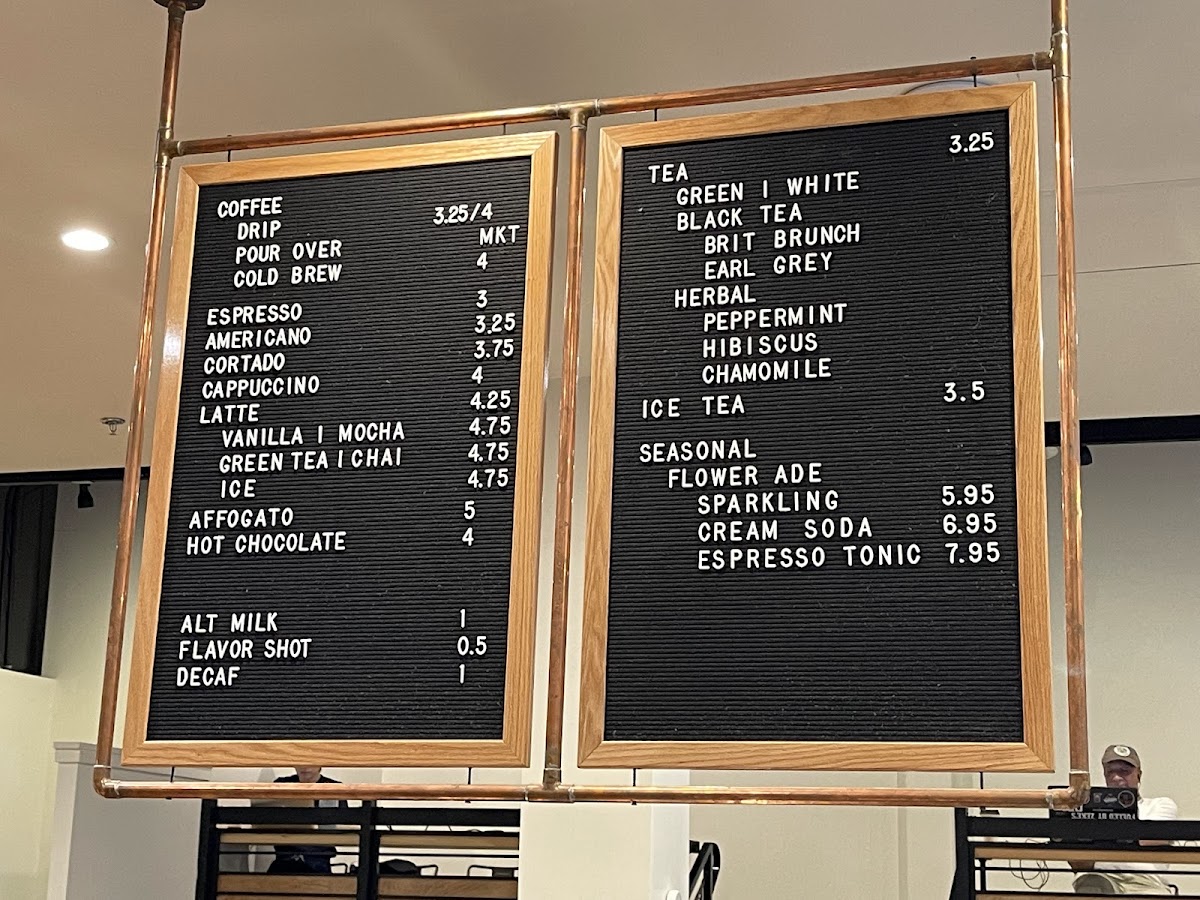 COFFEE
DRIP 3.25/4
POUR OVER MKT
COLD BREW 4
ESPRESSO 3
AMERICANO 3.25
CORTADO 3.75
CAPPUCCINO 4
LATTE 4.25
VANILLA | MOCHA 4.75
GREEN TEA | CHAI 4.75
ICE 4.75
AFFOGATO 5
HOT CHOCOLATE 4
ALT MILK 1
FLAVOR SHOT 0.5
DECAF 1
TEA 3.25
GREEN | WHITE
BLACK TEA
BRIT BRUNCH
EARL GREY
HERBAL
PEPPERMINT
HIBISCUS
CHAMOMILE
ICE TEA 3.5
SEASONAL
FLOWER ADE
SPARKLING 5.95
CREAM SODA 6.95
ESPRESSO TONIC 7.95